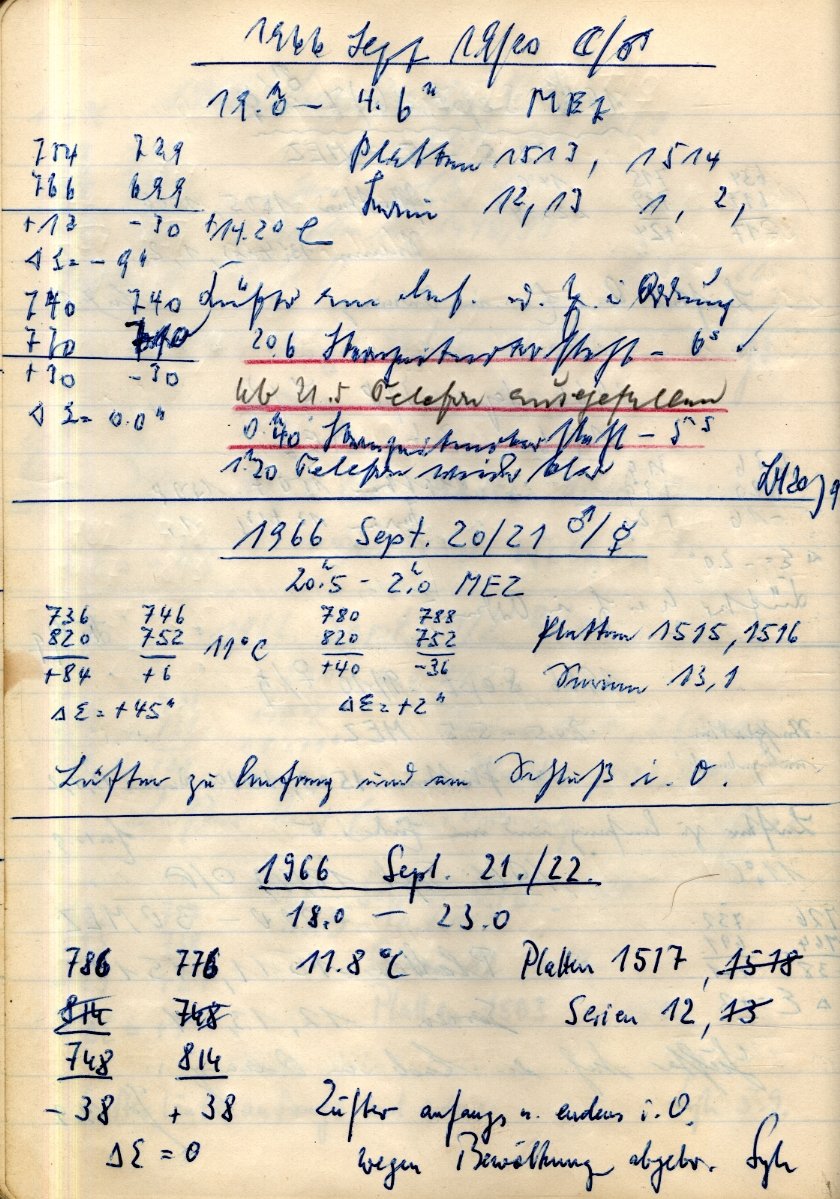 1966 Sept 19/20 ☾/♂
19.0 – 4.6ʰ MEZ
754 729 Platten 1513, 1514
766 699 Serien 12, 13 1, 2,
+12 -30 +14.20 C
ΔΣ = - 9"
740 740 Lüfter am Anf. u. E. i Ordnung
770 710 20.6 – 6ˢ
+30 -30 ab 21.5 Telefon ausgefallen
ΔΣ = 0.0" 0.40 – 5ˢ5
1.20 Telefon wieder klar
1966 Sept. 20/21 ♂/☿
20ʰ.5 - 2ʰ.0 MEZ
736 746 780 788
820 752 11°C 820 752 Platten 1515, 1516
+84 +6 +40 -36 Serien 13, 1
ΔΣ = +45" ΔΣ = +2"
Lüfter zu Anfang und am Schluß i. O.
1966 Sept. 21./22.
18.0 — 23.0
786 776 11.8 °C Platten 1517, 1518
814 748 Serien 12, 13
748 814
- 38 + 38 Lüfter anfangs u. endens i.O.
ΔΣ = 0 wegen Bewölkung abgebr.